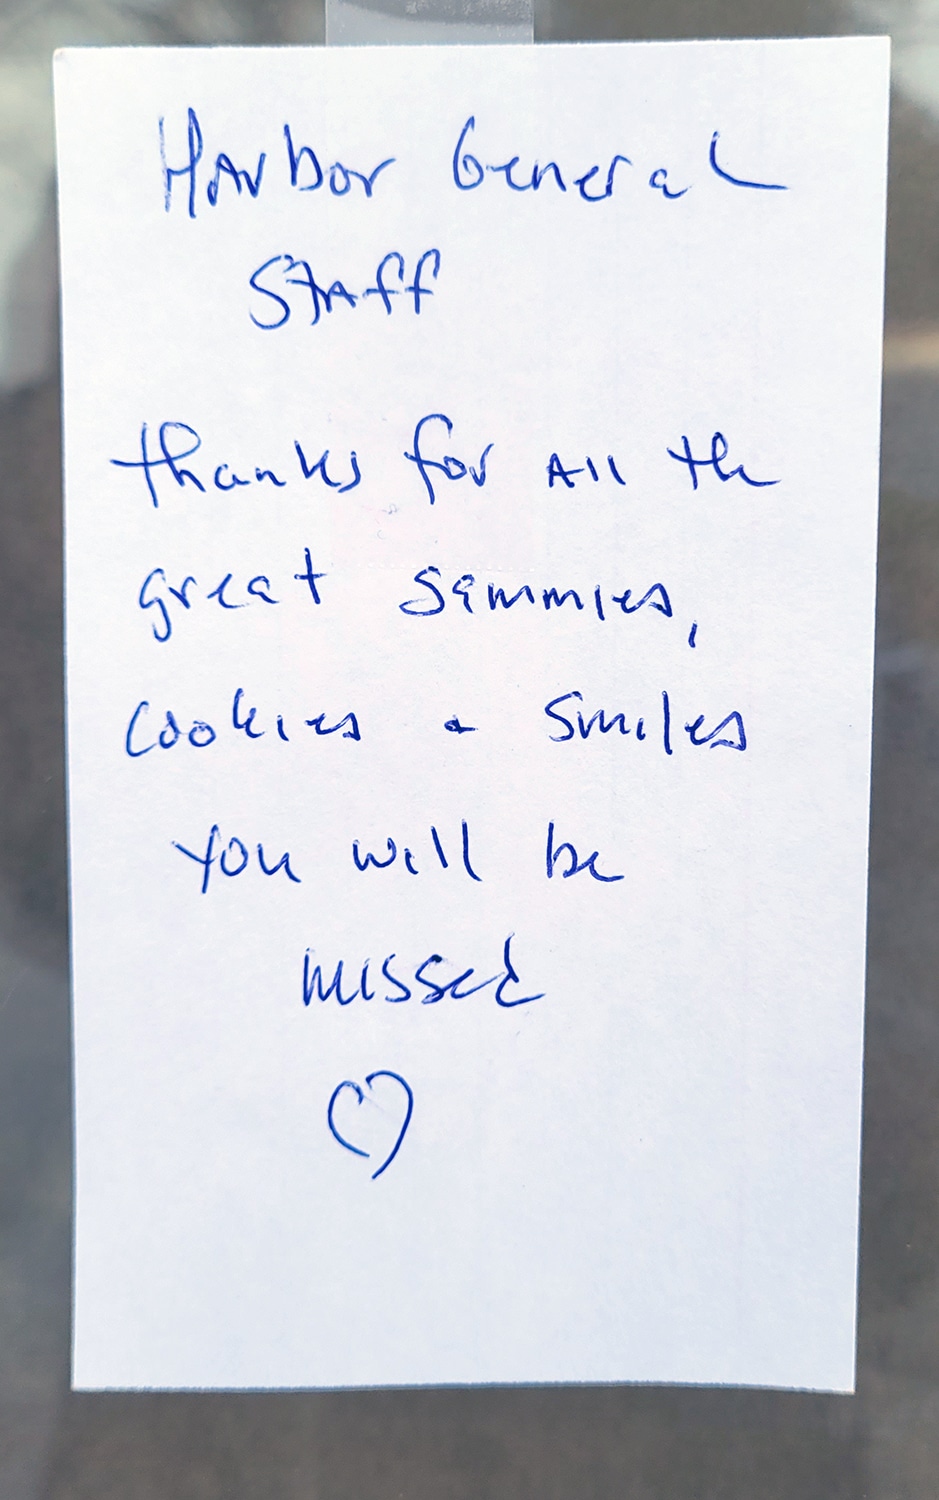 Harbor General
Staff
thanks for All the
great sammies,
cookies & smiles
You will be
missed
♡